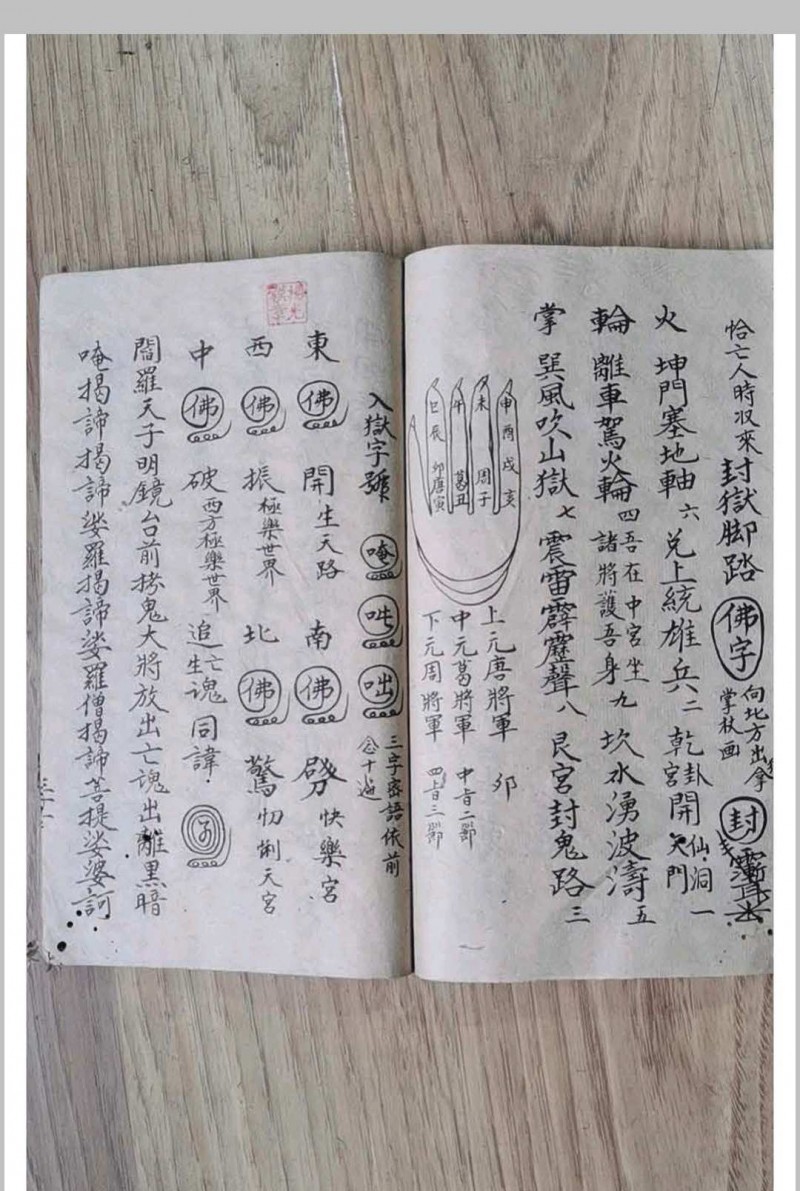 恰亡人時収來封獄脚踏 佛字 向北方出拿
掌杖画 封
火 坤門塞地軸六兑上統雄兵二乾宮卦開天門仙洞一
輪 離車駕火輪四吾在中宮坐
諸將護吾身九坎水湧波濤五
掌 巽風吹山獄七震雷霹靂聲八艮宮封鬼路三
申酉戌亥
未 周子
午 葛丑
巳辰卯唐寅
上元唐將軍 卯
中元葛將軍
下元周將軍
入獄字號 唵 吽 咄 三字密語依前
念十遍
東 佛 開生天路 南 佛 劈 快樂宮
西 佛 振極樂世界 北 佛 驚忉悧天宮
中 佛 破西方極樂世界 追生亡魂同諱
閻羅天子明鏡台前拷鬼大將放出亡魂出離黑暗
唵揭諦揭諦娑羅揭諦娑羅僧揭諦菩提娑婆訶